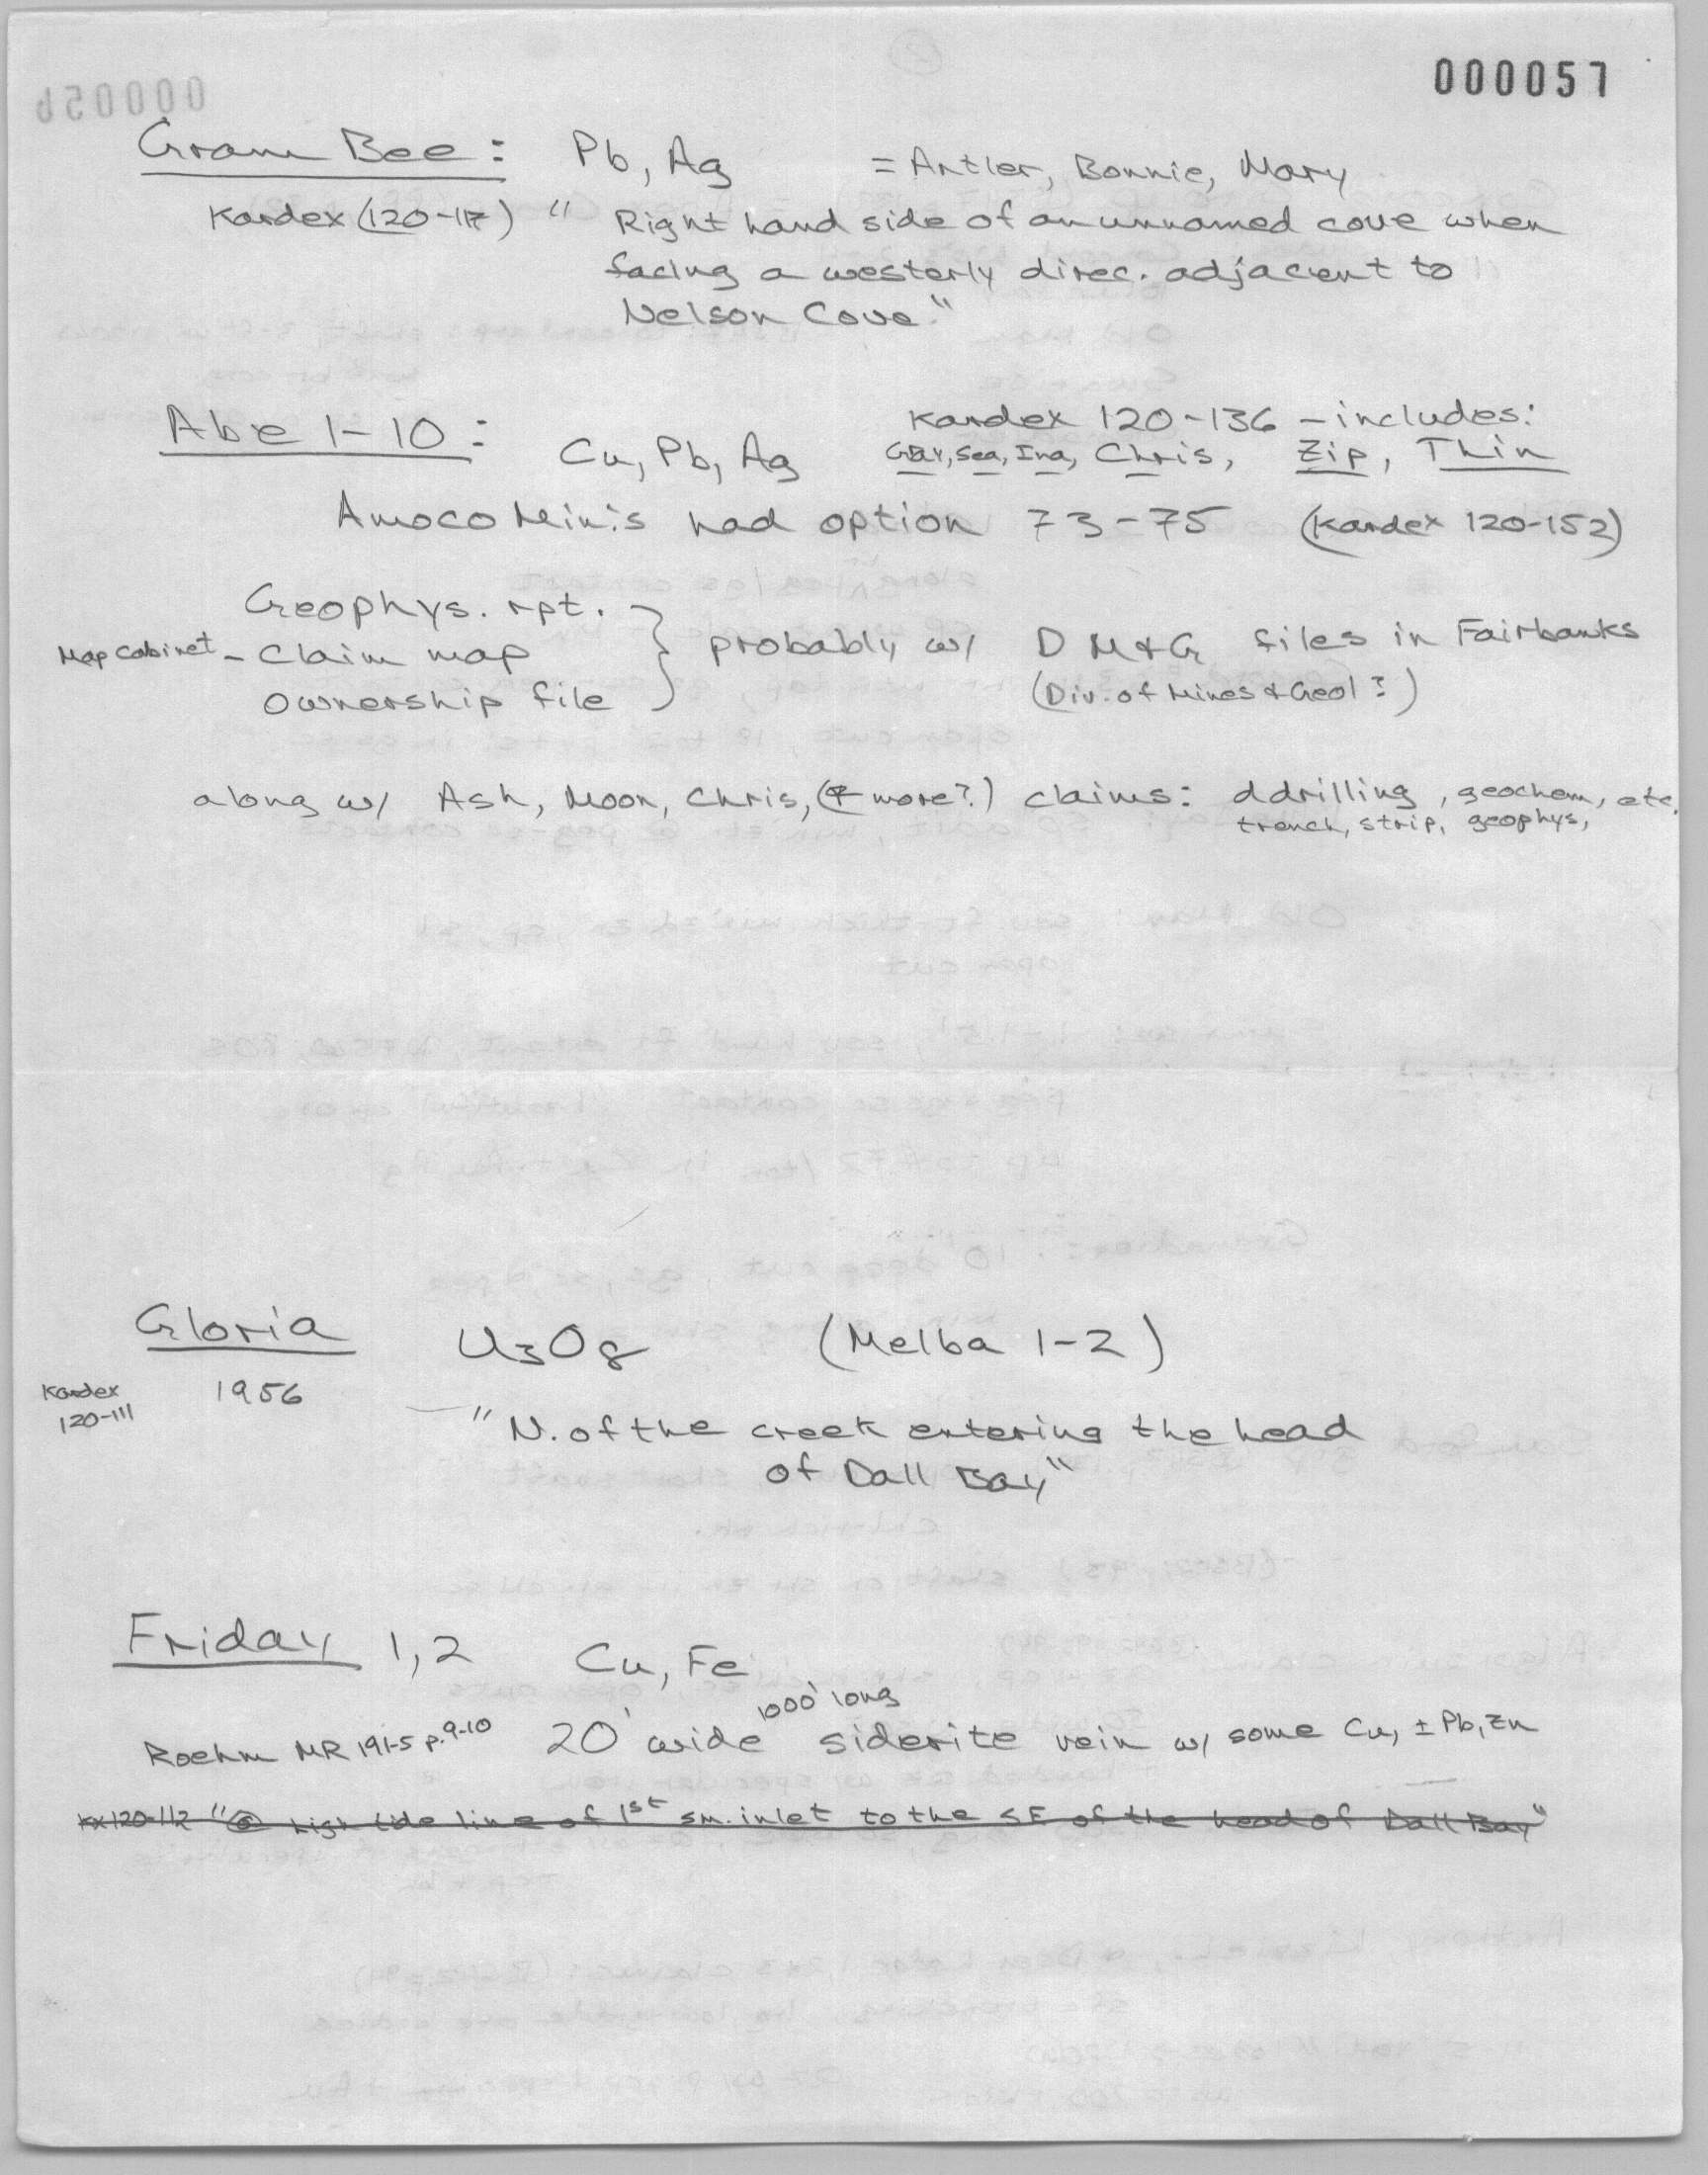 000057
Gram Bee: Pb, Ag = Antler, Bonnie, Mary
Kardex (120-117) " Right hand side of an unnamed cove when
facing a westerly direc. adjacent to
Nelson Cove."
Abe 1-10: Cu, Pb, Ag Kardex 120-136 - includes:
Gay, Sea, Ina, Chris, Zip, Thin
Amoco Min's had option 73-75 (Kardex 120-152)
Geophys. rpt.
Map Cabinet - Claim map } probably w/ D M & G files in Fairbanks
Ownership file (Div. of Mines & Geol?)
along w/ Ash, Moon, Chris, (& more?) claims: ddrilling, geochem, etc.
trench, strip, geophys,
Gloria U3O8 (Melba 1-2)
Kardex 1956
120-111
"N. of the creek entering the head
of Dall Bay"
Friday 1,2 Cu, Fe
1000' long
Roehm MR 191-5 p.9-10 20' wide siderite vein w/ some Cu, ± Pb, Zn
Kx 120-112 "@ high tide line of 1st sm. inlet to the SE of the head of Dall Bay"